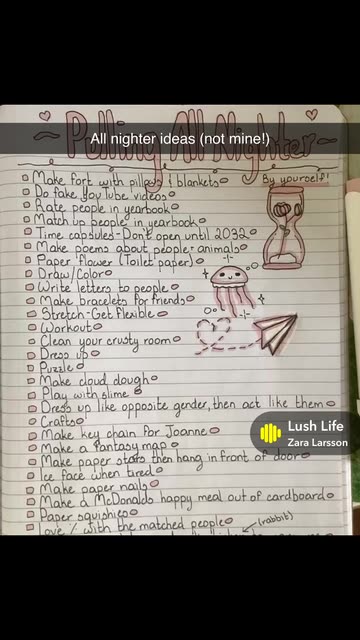 Pulling All Nighter
All nighter ideas (not mine!)
By yourself!
Make fort with pillows & blankets
Do fake YouTube videos
Rate people in yearbook
Match up people in yearbook
Time capsules-Don't open until 2032
Make poems about people+animals
Paper flower (Toilet paper)
Draw/Color
Write letters to people
Make bracelets for friends
Stretch-Get flexible
Workout
Clean your crusty room
Dress up
Puzzle
Make cloud dough
Play with slime
Dress up like opposite gender, then act like them
Crafts
Lush Life
Zara Larsson
Make key chain for Joanne
Make a fantasy map
Make paper stars then hang in front of door
Ice face when tired
Make paper nails
Make a McDonalds happy meal out of cardboard
Paper squishies
Love % with the matched people
(rabbit)